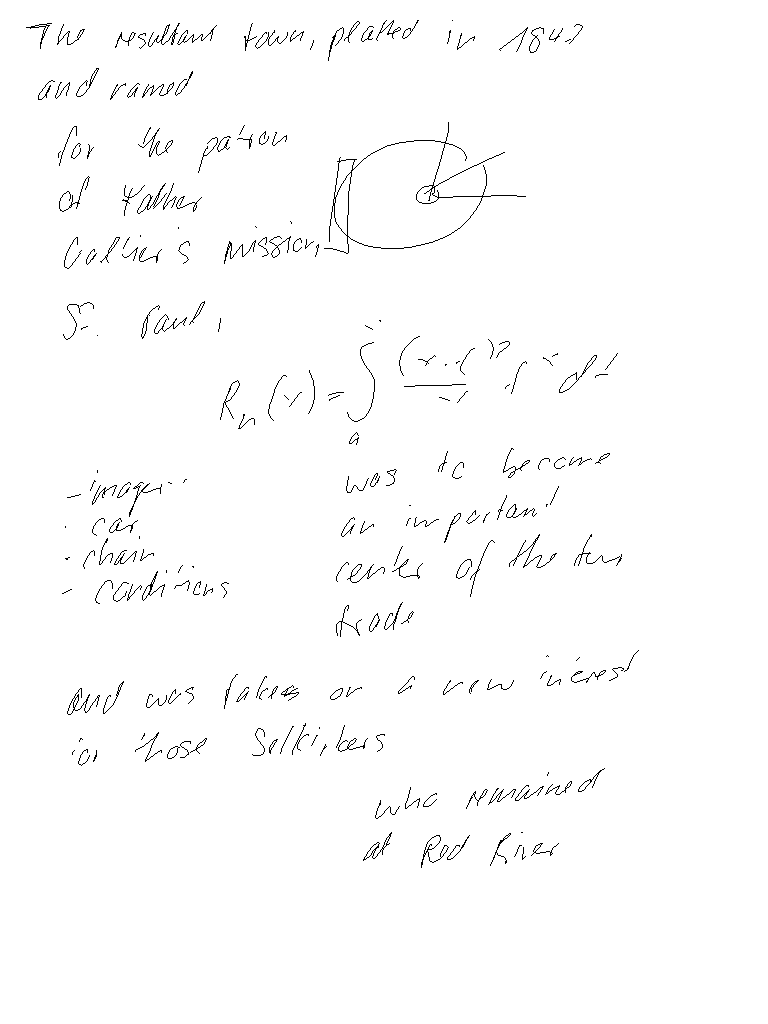 The resultant town, platted in 1847
and named
for the patron
of Father
Galtier's mission,
St. Paul,
R_n(x) = \int_a
- images
- car
- chain
- conditions
was to become
an important
center of the fur
trade
and was takes on a new interest
for those Selkirkers
who remained
at Red River